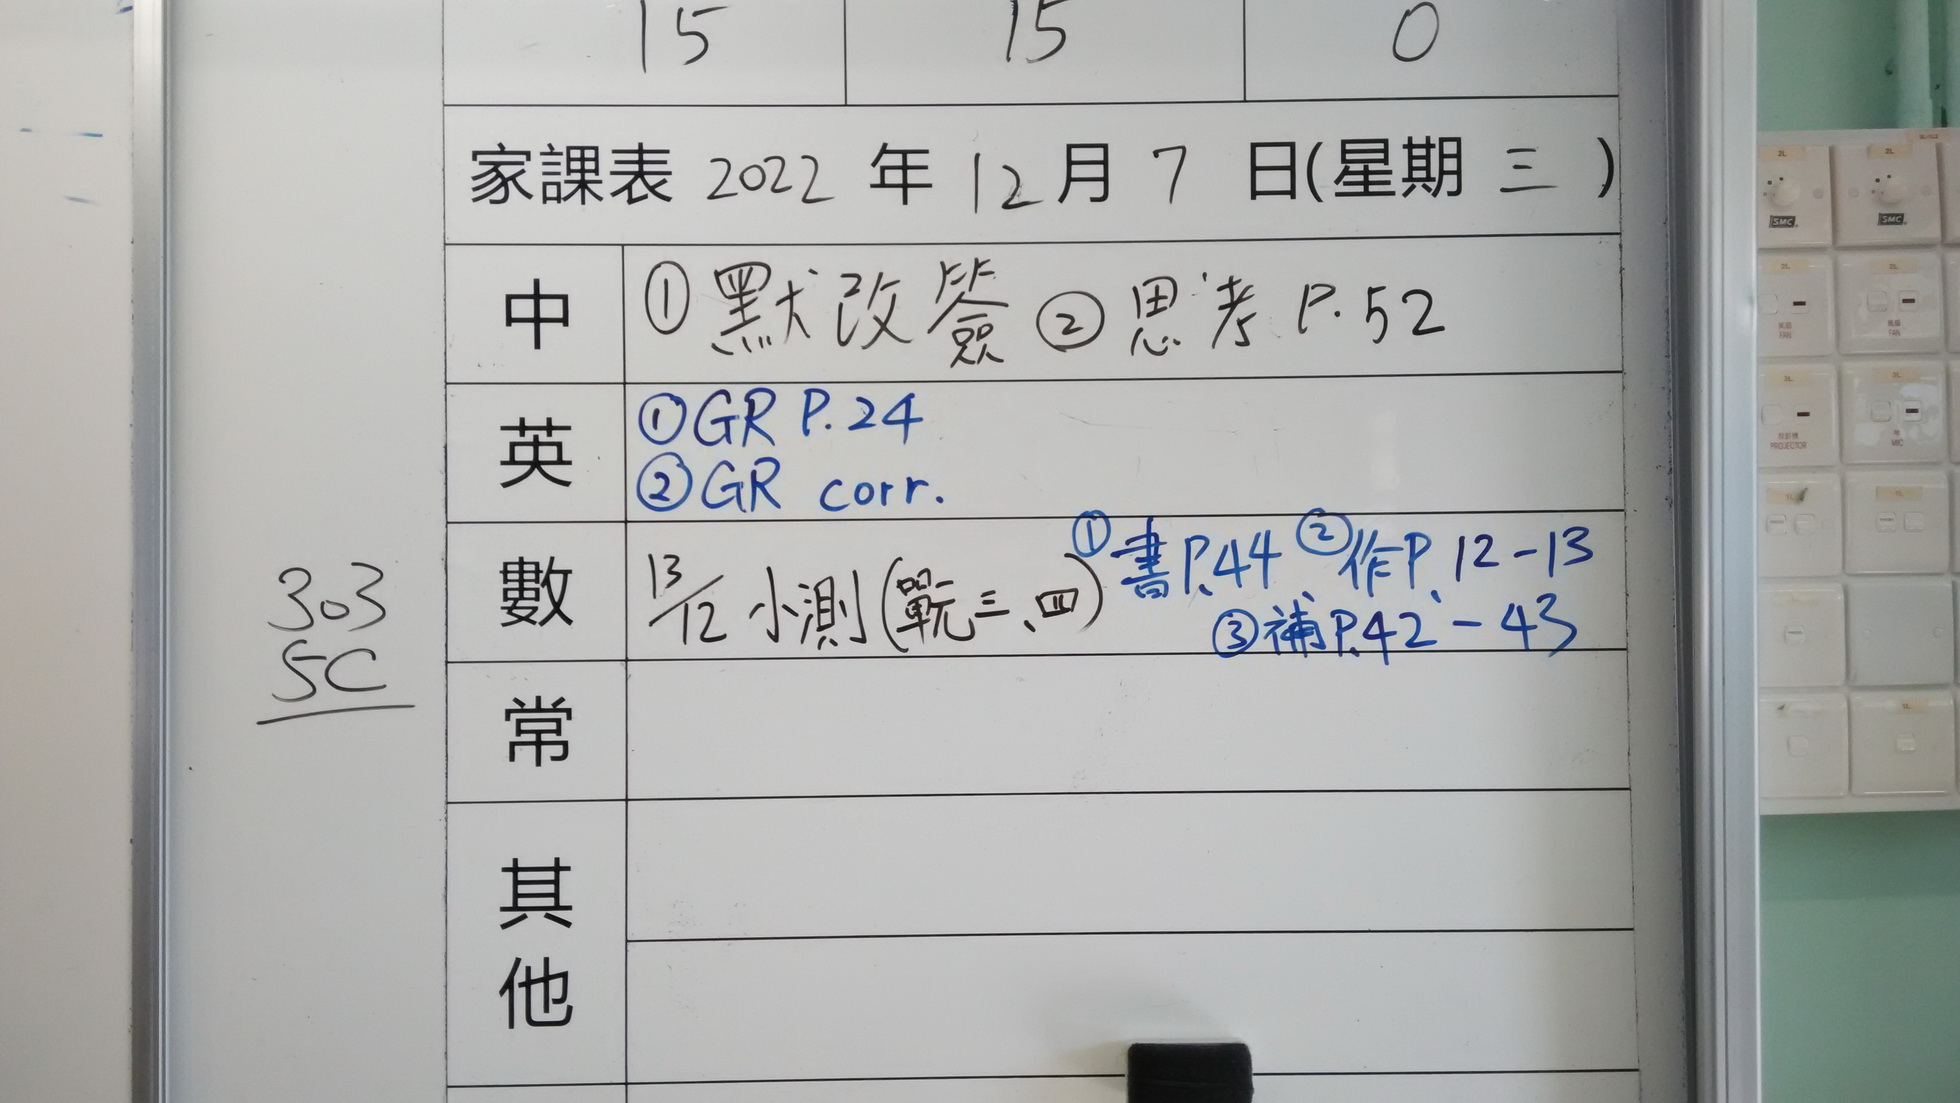 15 15 0
家課表 2022 年 12 月 7 日(星期 三 )
中 ① 默改簽 ② 思考 P.52
英 ① GR P.24
② GR corr.
數 13/12 小測(單元三、四) ① 書P.44 ② 作P. 12-13
③ 補P.42-43
303
5C
常
其他
2L
2L
SMC
SMC
FAN
FAN
PROJECTOR
MIC